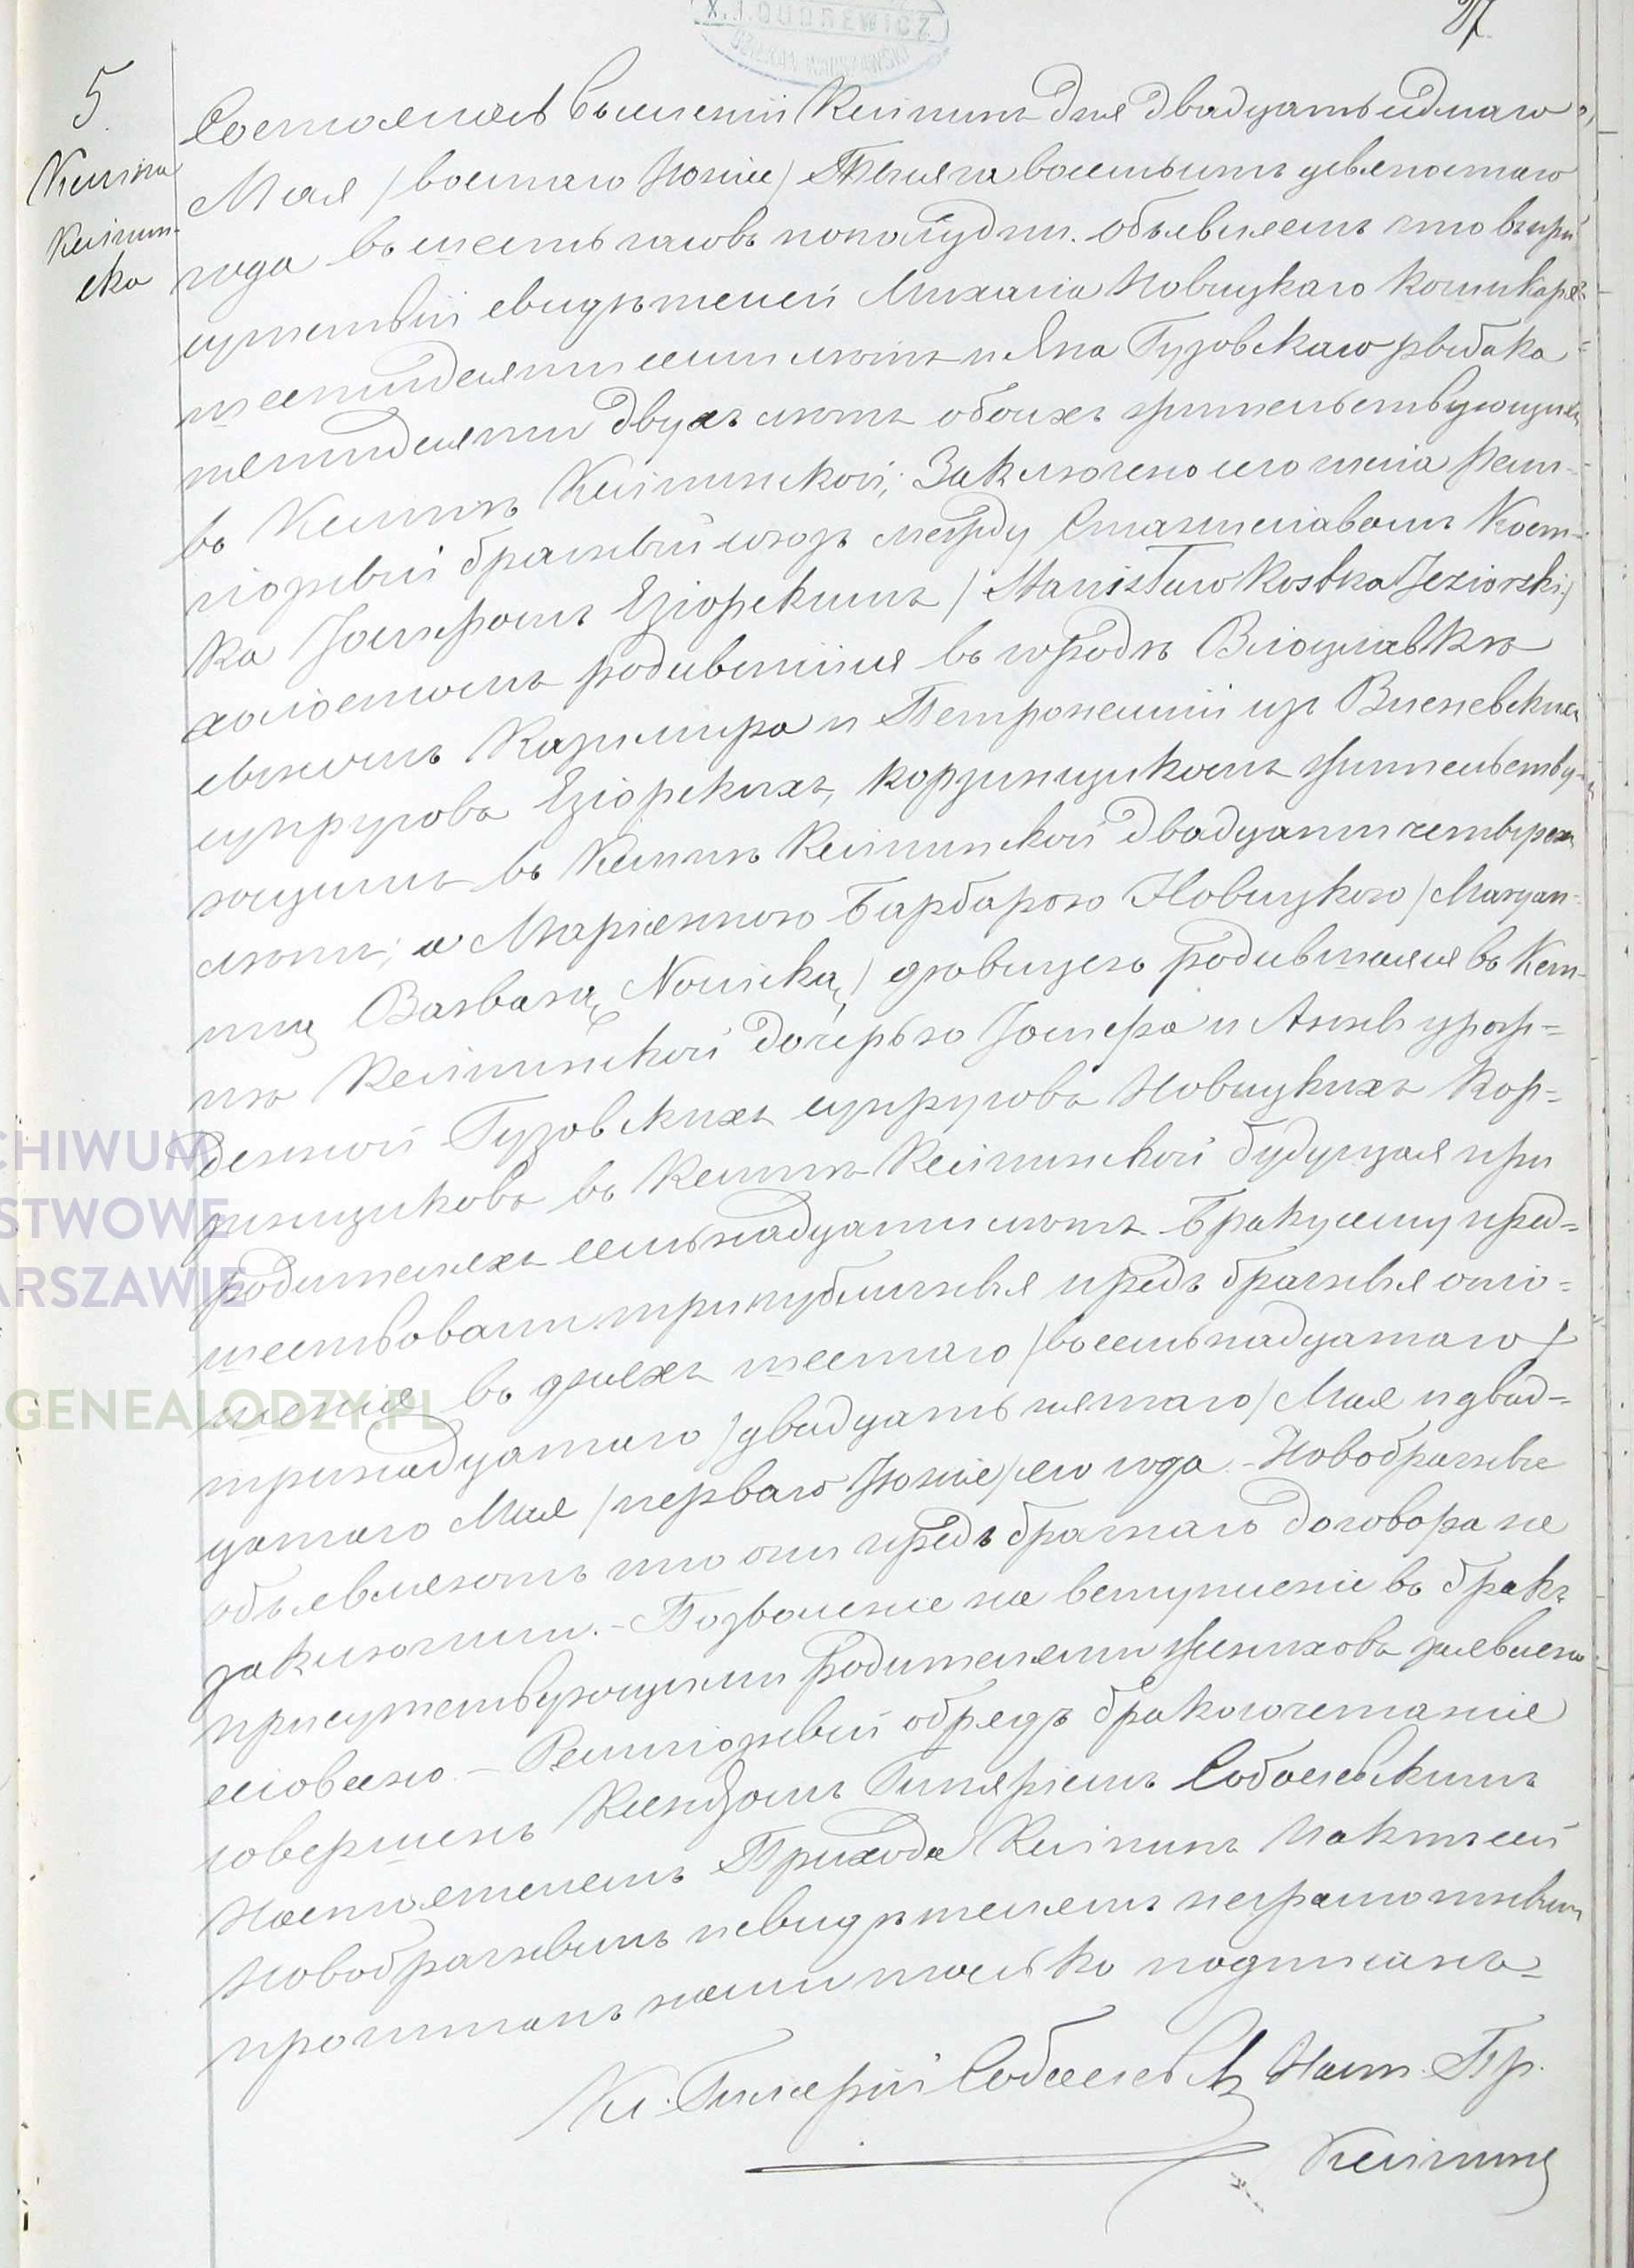 X. J. DUDREWICZ
27
5
Кемпа
Келпин-
ска
Состоялось въ селеніи Келпинъ дня двадцать седмаго
Мая /восмаго Іюнія/ Тысяча восемьсотъ девяностаго
года въ шесть часовъ пополудни. Объявляемъ что въ при-
сутствіи свидѣтелей Михала Новицкаго кошикаря
шестидесяти семи лѣтъ и Яна Гузовскаго рыбака
шестидесяти двухъ лѣтъ обоихъ жительствующихъ
въ Кемпѣ Келпинской; Заключено сего числа рели-
гіозный брачный союзъ между Станиславомъ Кост-
ка Іосифомъ Езіорскимъ /Stanisław Kostka Jeziorski/
холостымъ родившійся въ городѣ Влоцлавкѣ
сыномъ Казимира и Петронеліи изъ
супруговъ Езіорскихъ, корзинщикомъ жительству-
ющимъ въ Кемпѣ Келпинской двадцати четырехъ
лѣтъ; а Маріянною Барбарою Новицкою /Maryan-
ną Barbarą Nowicką/ дѣвицею родившаяся въ Кем-
пѣ Келпинской дочерью Іосифа и Анны урож-
денной Гузовскихъ супруговъ Новицкихъ кор-
зинщиковъ въ Кемпѣ Келпинской будущая при
родителяхъ семьнадцати лѣтъ. Браку сему пред-
шествовали три публичныя предъ брачныя огло-
шенія въ дняхъ шестаго /восемьнадцатаго/
тринадцатаго /двадцать пятаго/ Мая и двад-
цатаго Мая /перваго Іюнія/ сего года - Новобрачные
объявляютъ что они предъ брачнаго договора не
заключили. - Позволеніе на вступленіе въ бракъ
присутствующими родителями жениховъ изъявлено
словесно - Религіозный обрядъ бракосочетанія
совершенъ Ксендзомъ Гиляріемъ Соболевскимъ
Настоятелемъ Прихода Келпинъ Актъ сей
Новобрачнымъ и свидѣтелямъ неграмотнымъ
прочитанъ нами только подписанъ -
Кс. Гилярій Соболевскій Наст. Пр.
Келпинъ
ARCHIWUM
PAŃSTWOWE
WARSZAWIE
GENEALODZY.PL